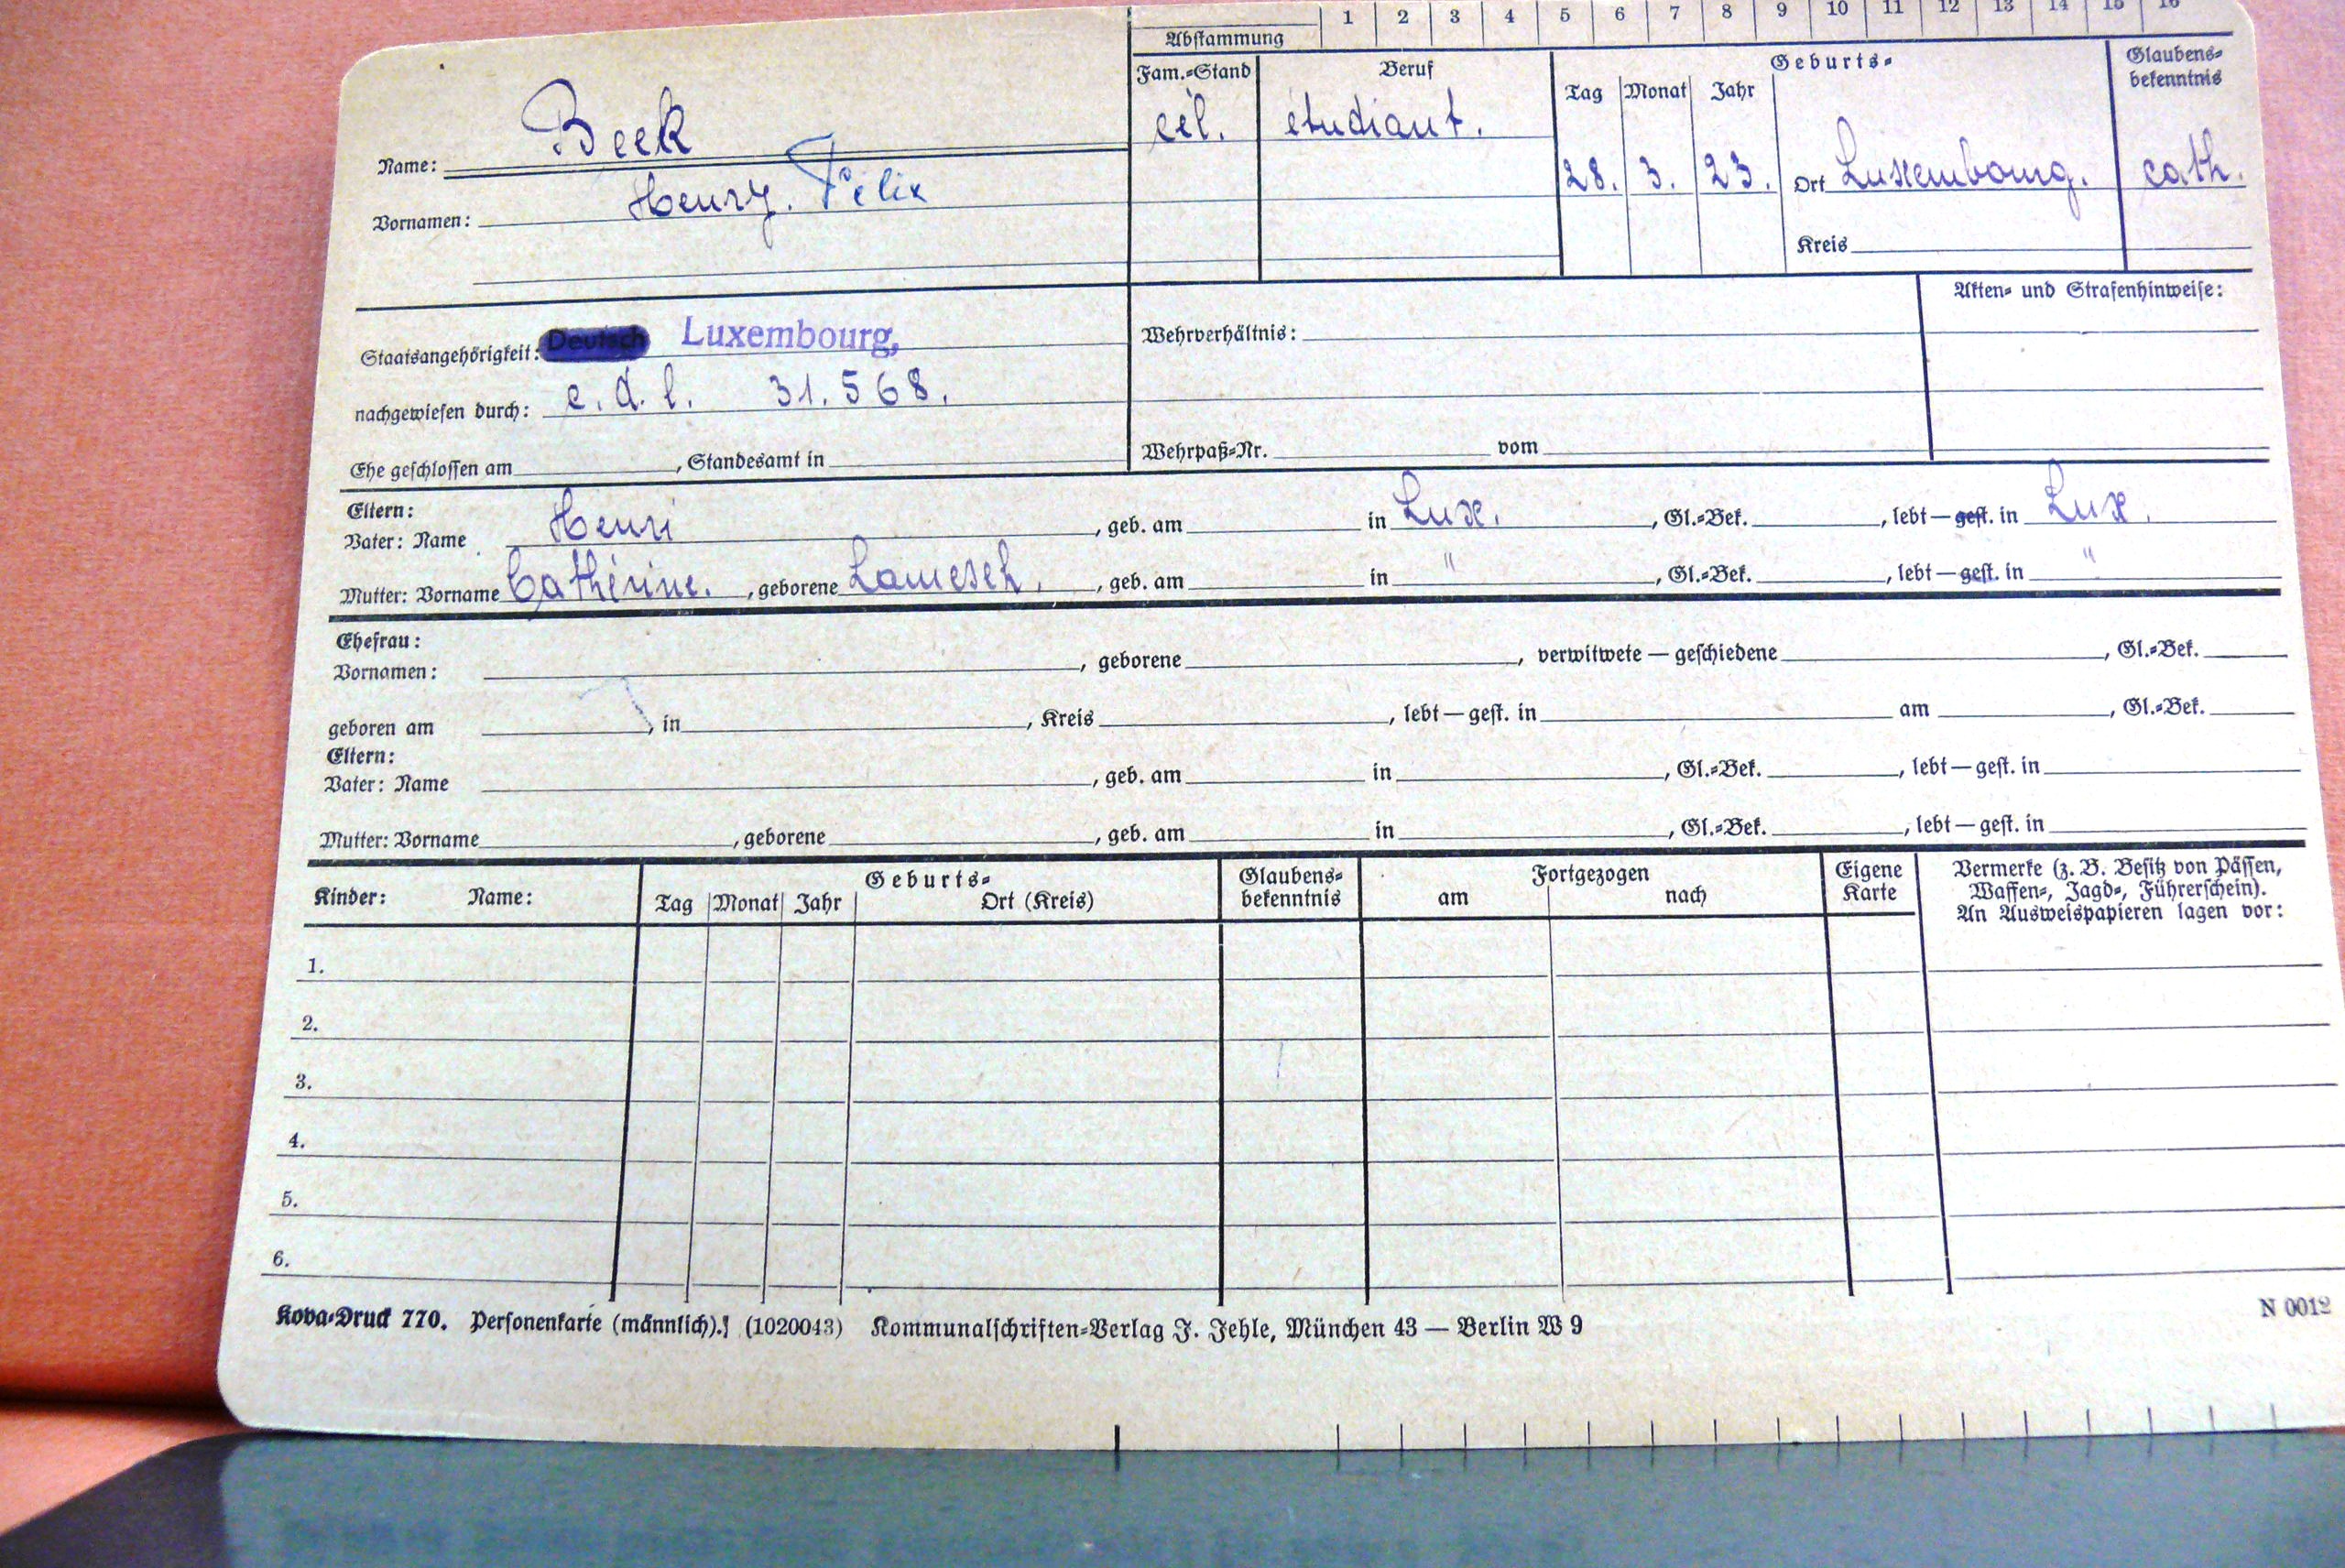 1 2 3 4 5 6 7 8 9 10 11 12 13 14 15 16
Abstammung
Fam.-Stand Beruf Geburts- Glaubens-
bekenntnis
Tag Monat Jahr
cél. étudiant.
Name: Beck
28. 3. 23. Ort Luxembourg. cath.
Vornamen: Henry. Félix
Kreis
Akten- und Strafenhinweise:
Staatsangehörigkeit: Deutsch Luxembourg,
Wehrverhältnis:
nachgewiesen durch: c. d. l. 31.568.
Ehe geschlossen am , Standesamt in
Wehrpaß-Nr. vom
Eltern:
Vater: Name Henri , geb. am in Lux. , Gl.-Bek. , lebt — gest. in Lux.
Mutter: Vorname Cathérine. , geborene Lamesch. , geb. am in " , Gl.-Bek. , lebt — gest. in "
Ehefrau:
Vornamen: , geborene , verwitwete — geschiedene , Gl.-Bek.
geboren am , in , Kreis , lebt — gest. in am , Gl.-Bek.
Eltern:
Vater: Name , geb. am in , Gl.-Bek. , lebt — gest. in
Mutter: Vorname , geborene , geb. am in , Gl.-Bek. , lebt — gest. in
Kinder: Name: Geburts- Glaubens-
bekenntnis Fortgezogen Eigene
Karte Vermerke (z. B. Besitz von Pässen,
Waffen-, Jagd-, Führerschein).
An Ausweispapieren lagen vor:
Tag Monat Jahr Ort (Kreis) am nach
1.
2.
3.
4.
5.
6.
Kova-Druck 770. Personenkarte (männlich). (1020043) Kommunalschriften-Verlag J. Jehle, München 43 — Berlin W 9
N 0012